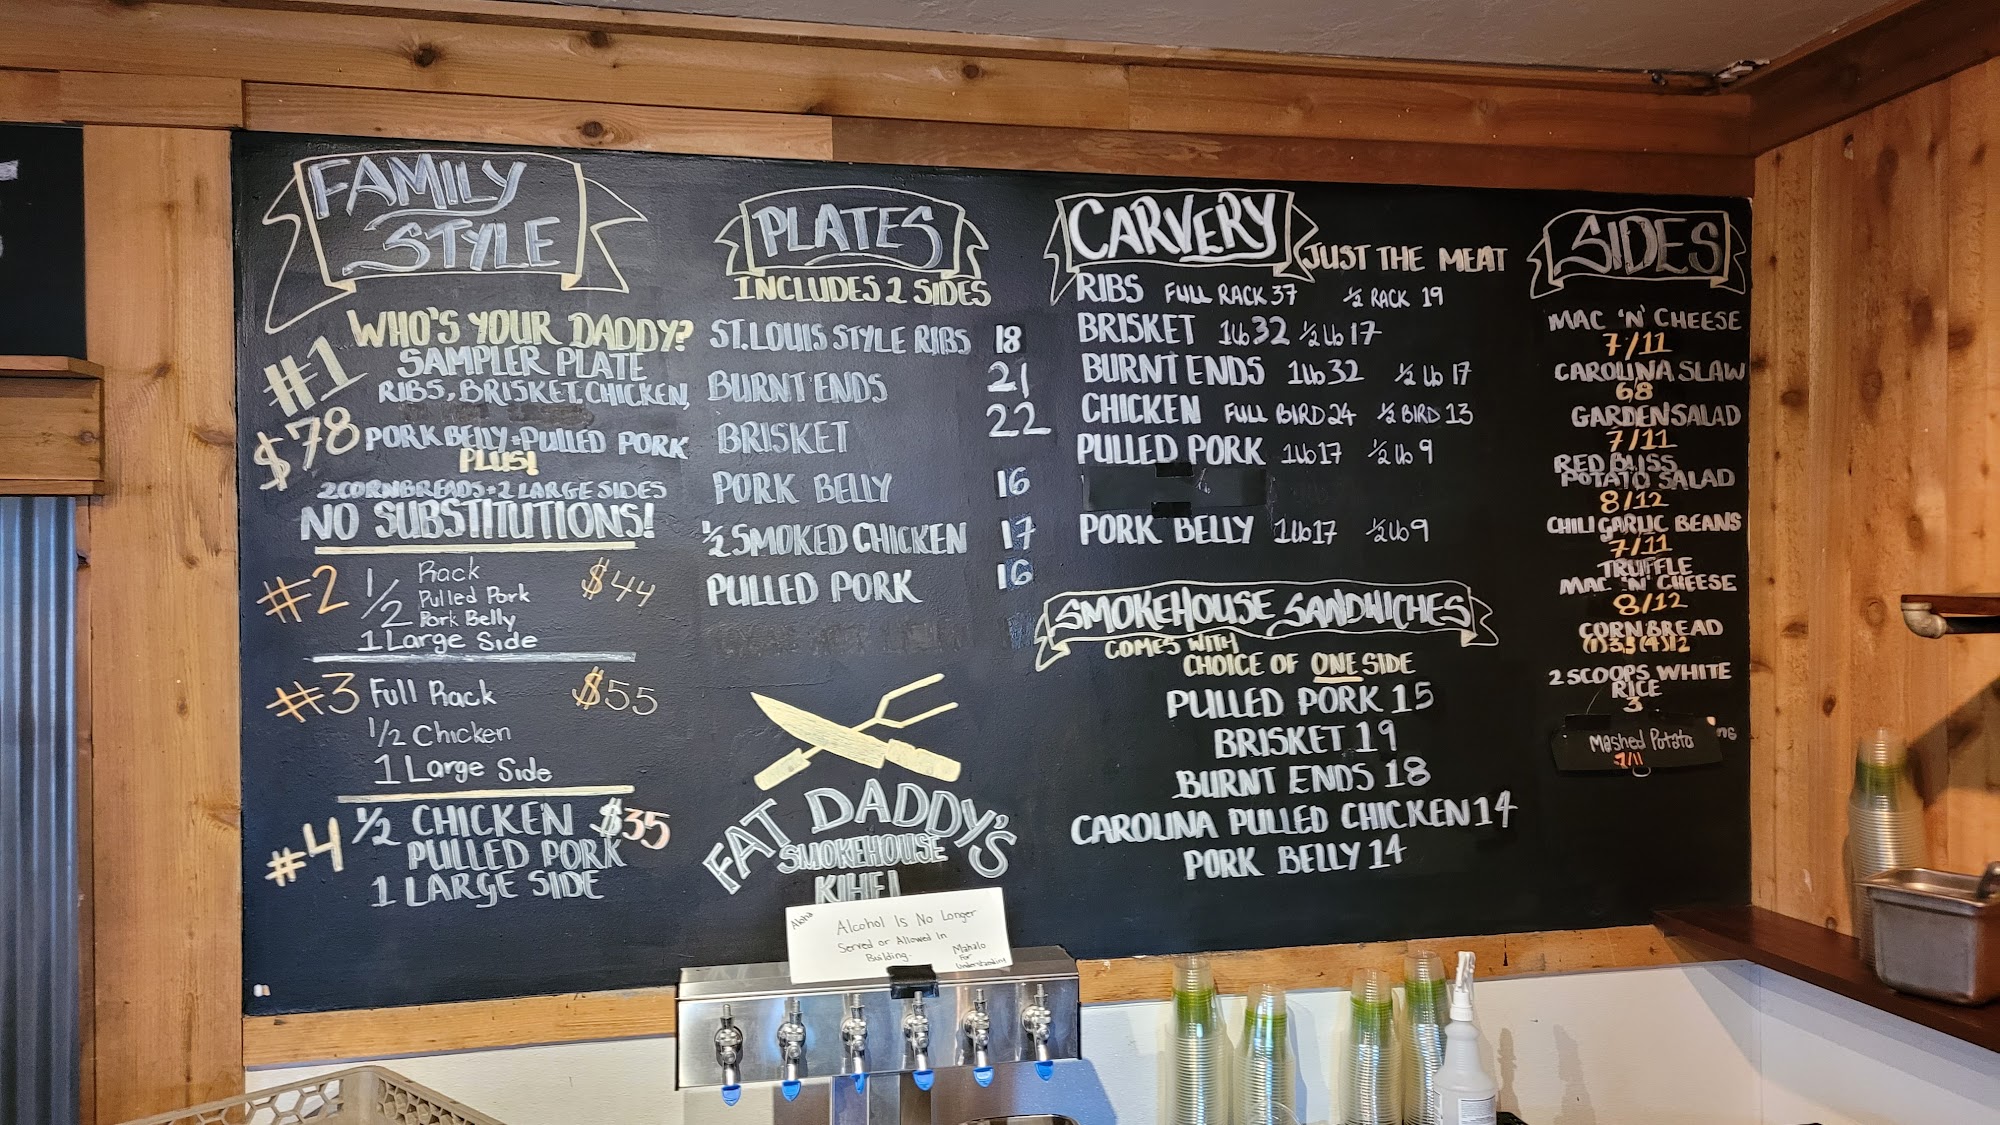 FAMILY
STYLE
#1
$78
WHO'S YOUR DADDY?
SAMPLER PLATE
RIBS, BRISKET, CHICKEN,
PORK BELLY + PULLED PORK
PLUS!
2 CORNBREADS + 2 LARGE SIDES
NO SUBSTITUTIONS!
#2 1/2 Rack $44
Pulled Pork
Pork Belly
1 Large Side
#3 Full Rack $55
1/2 Chicken
1 Large Side
#4 1/2 CHICKEN $35
PULLED PORK
1 LARGE SIDE
PLATES
INCLUDES 2 SIDES
ST. LOUIS STYLE RIBS 18
BURNT ENDS 21
BRISKET 22
PORK BELLY 16
1/2 SMOKED CHICKEN 17
PULLED PORK 16
FAT DADDY'S
SMOKEHOUSE
KIHEI
Aloha
Alcohol Is No Longer
Served or Allowed In
Building.
Mahalo
For
Understanding
CARVERY JUST THE MEAT
RIBS FULL RACK 37 1/2 RACK 19
BRISKET 1lb 32 1/2 lb 17
BURNT ENDS 1lb 32 1/2 lb 17
CHICKEN FULL BIRD 24 1/2 BIRD 13
PULLED PORK 1lb 17 1/2 lb 9
PORK BELLY 1lb 17 1/2 lb 9
SMOKEHOUSE SANDWICHES
COMES WITH
CHOICE OF ONE SIDE
PULLED PORK 15
BRISKET 19
BURNT ENDS 18
CAROLINA PULLED CHICKEN 14
PORK BELLY 14
SIDES
MAC 'N' CHEESE
7/11
CAROLINA SLAW
6/8
GARDEN SALAD
7/11
RED BLISS
POTATO SALAD
8/12
CHILI GARLIC BEANS
7/11
TRUFFLE
MAC 'N' CHEESE
8/12
CORN BREAD
(1)3.5 (4)12
2 SCOOPS WHITE
RICE
3
Mashed Potato
7/11